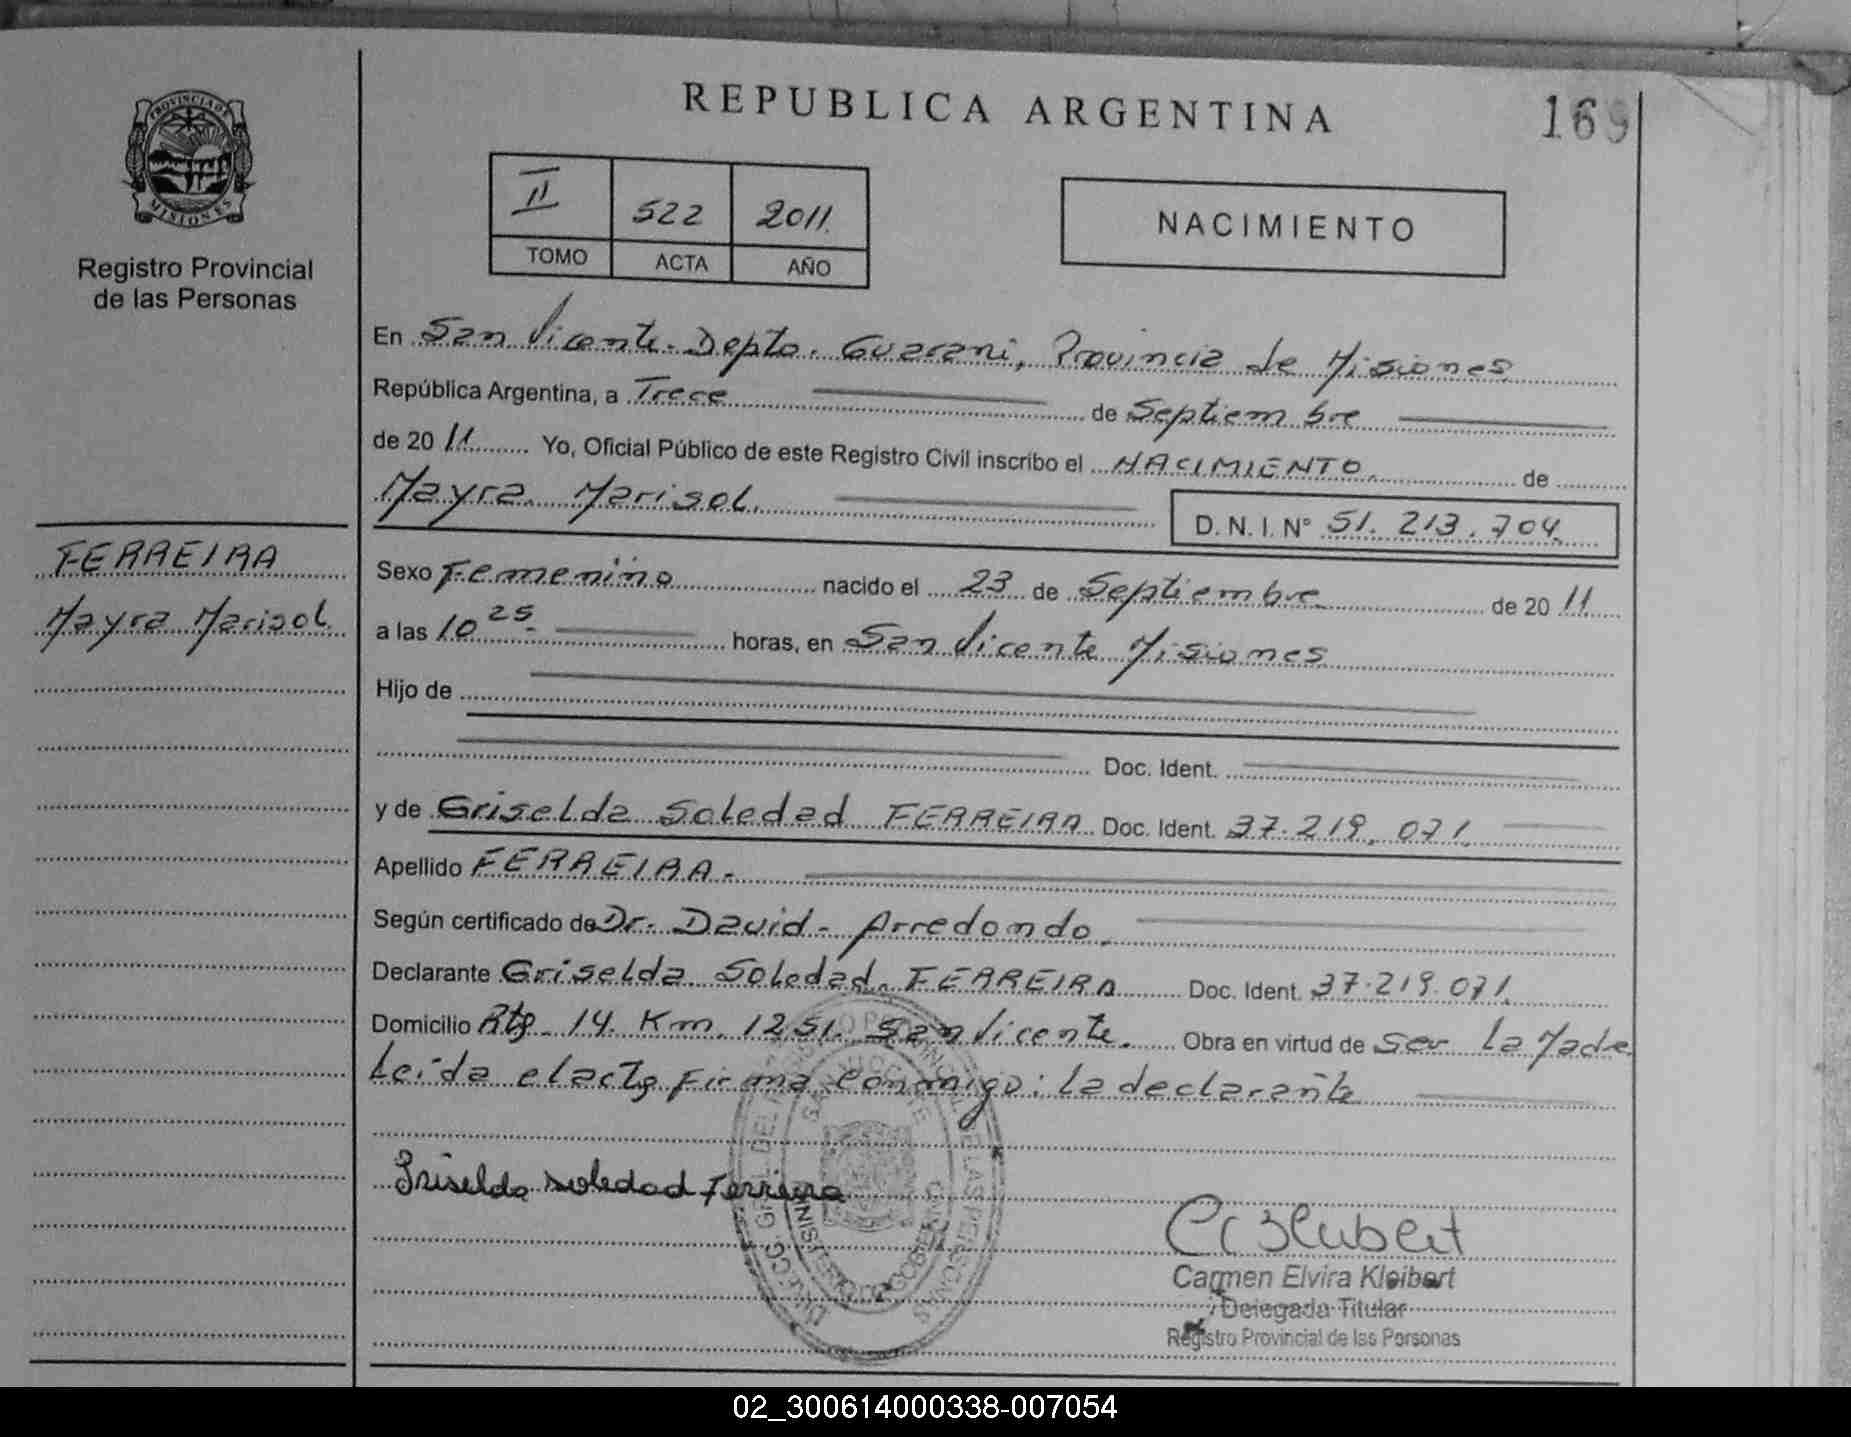 REPUBLICA ARGENTINA
169
PROVINCIA DE
MISIONES
Registro Provincial
de las Personas
II 522 2011.
TOMO ACTA AÑO
NACIMIENTO
En San Vicente. Depto. Guarani, Provincia de Misiones
República Argentina, a Trece de Septiembre
de 20 11 Yo, Oficial Público de este Registro Civil inscribo el NACIMIENTO. de
Mayra Marisol.
D. N. I. N° 51.213.704.
FERREIRA
Mayra Marisol
Sexo Femenino nacido el 23 de Septiembre de 20 11
a las 10 25 horas, en San Vicente Misiones
Hijo de
Doc. Ident.
y de Griselda Soledad FERREIRA Doc. Ident. 37.219.071.
Apellido FERREIRA.
Según certificado de Dr. David Arredondo.
Declarante Griselda Soledad FERREIRA Doc. Ident. 37.219.071.
Domicilio Rta. 14 Km. 1251. San Vicente. Obra en virtud de Ser La Madre
Leida el acta firma conmigo: la declarante
Griselda Soledad Ferreira
Carmen Elvira Kleibert
Delegada Titular
Registro Provincial de las Personas
02_300614000338-007054